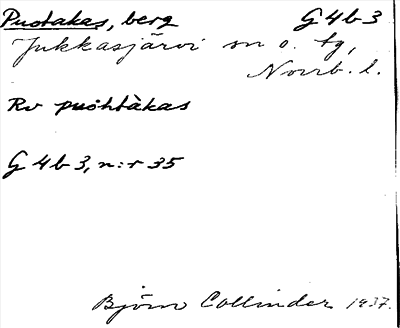 Puotakas, berg G4b3
Jukkasjärvi sn o. tg,
Norrb. l.
Rv puohtàkas
G4b3, n:r 35
Björn Collinder 1937.